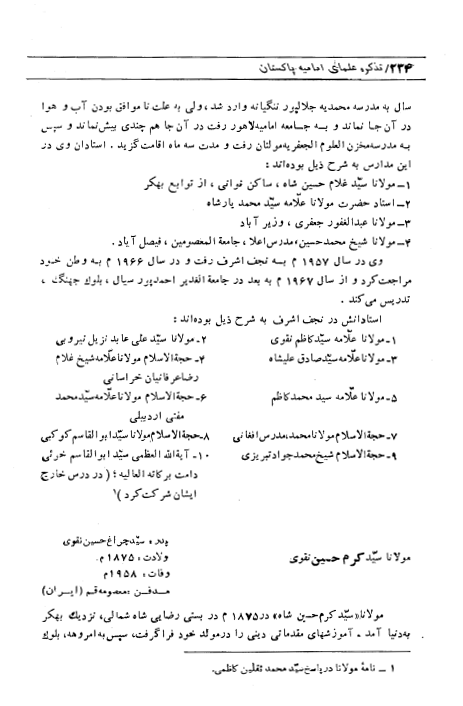 ۲۳۴/ تذکره علمای امامیه پاکستان
سال به مدرسه محمدیه جلالپور ننگیانه وارد شد، ولی به علت ناموافق بودن آب و هوا
در آن جا نماند و به جامعه امامیه لاهور رفت در آن جا هم چندی بیش نماند و سپس
به مدرسه مخزن العلوم الجعفریه مولتان رفت و مدت سه ماه اقامت گزید. استادان وی در
این مدارس به شرح ذیل بوده‌اند:
۱ـ مولانا سیّد غلام حسین شاه، ساکن نوانی، از توابع بهکر
۲ـ استاد حضرت مولانا علّامه سیّد محمد یارشاه
۳ـ مولانا عبدالغفور جعفری، وزیر آباد
۴ـ مولانا شیخ محمدحسین، مدرس اعلا، جامعة المعصومین، فیصل آباد.
وی در سال ۱۹۵۷ م به نجف اشرف رفت و در سال ۱۹۶۶ م به وطن خود
مراجعت کرد و از سال ۱۹۶۷ م به بعد در جامعة الغدیر احمدپور سیال، بلوك جهنگ،
تدریس می کند.
استادانش در نجف اشرف به شرح ذیل بوده‌اند:
۱ـ مولانا علّامه سیّدکاظم نقوی ۲ـ مولانا سیّد علی عابد نزیل نیروبی
۳ـ مولانا علّامه سیّدصادق علیشاه ۴ـ حجةالاسلام مولاناعلّامه شیخ غلام
رضا عرفانیان خراسانی
۵ـ مولانا علّامه سید محمدکاظم ۶ـ حجةالاسلام مولاناعلّامه سیّدمحمد
مفتی اردبیلی
۷ـ حجةالاسلام مولانامحمد، مدرس افغانی ۸ـ حجةالاسلام مولانا سیّدابوالقاسم کوکبی
۹ـ حجةالاسلام شیخ محمدجواد تبریزی ۱۰ـ آیةالله العظمی سیّد ابوالقاسم خوئی
دامت برکاته العالیه؛ (در درس خارج
ایشان شرکت کرد)۱
پدر: سیّدچراغ حسین نقوی
مولانا سیّد کرم حسین نقوی ولادت: ۱۸۷۵م.
وفات: ۱۹۵۸م
مدفن: معصومه قم (ایران)
مولانا «سیّد کرم حسین شاه» در ۱۸۷۵ م در بستی رضایی شاه شمالی، نزدیك بهکر
به‌دنیا آمد. آموزشهای مقدماتی دینی را درمولد خود فراگرفت، سپس به امروهه، بلوك
۱ ـ نامهٔ مولانا در پاسخ سیّد محمد ثقلین کاظمی.